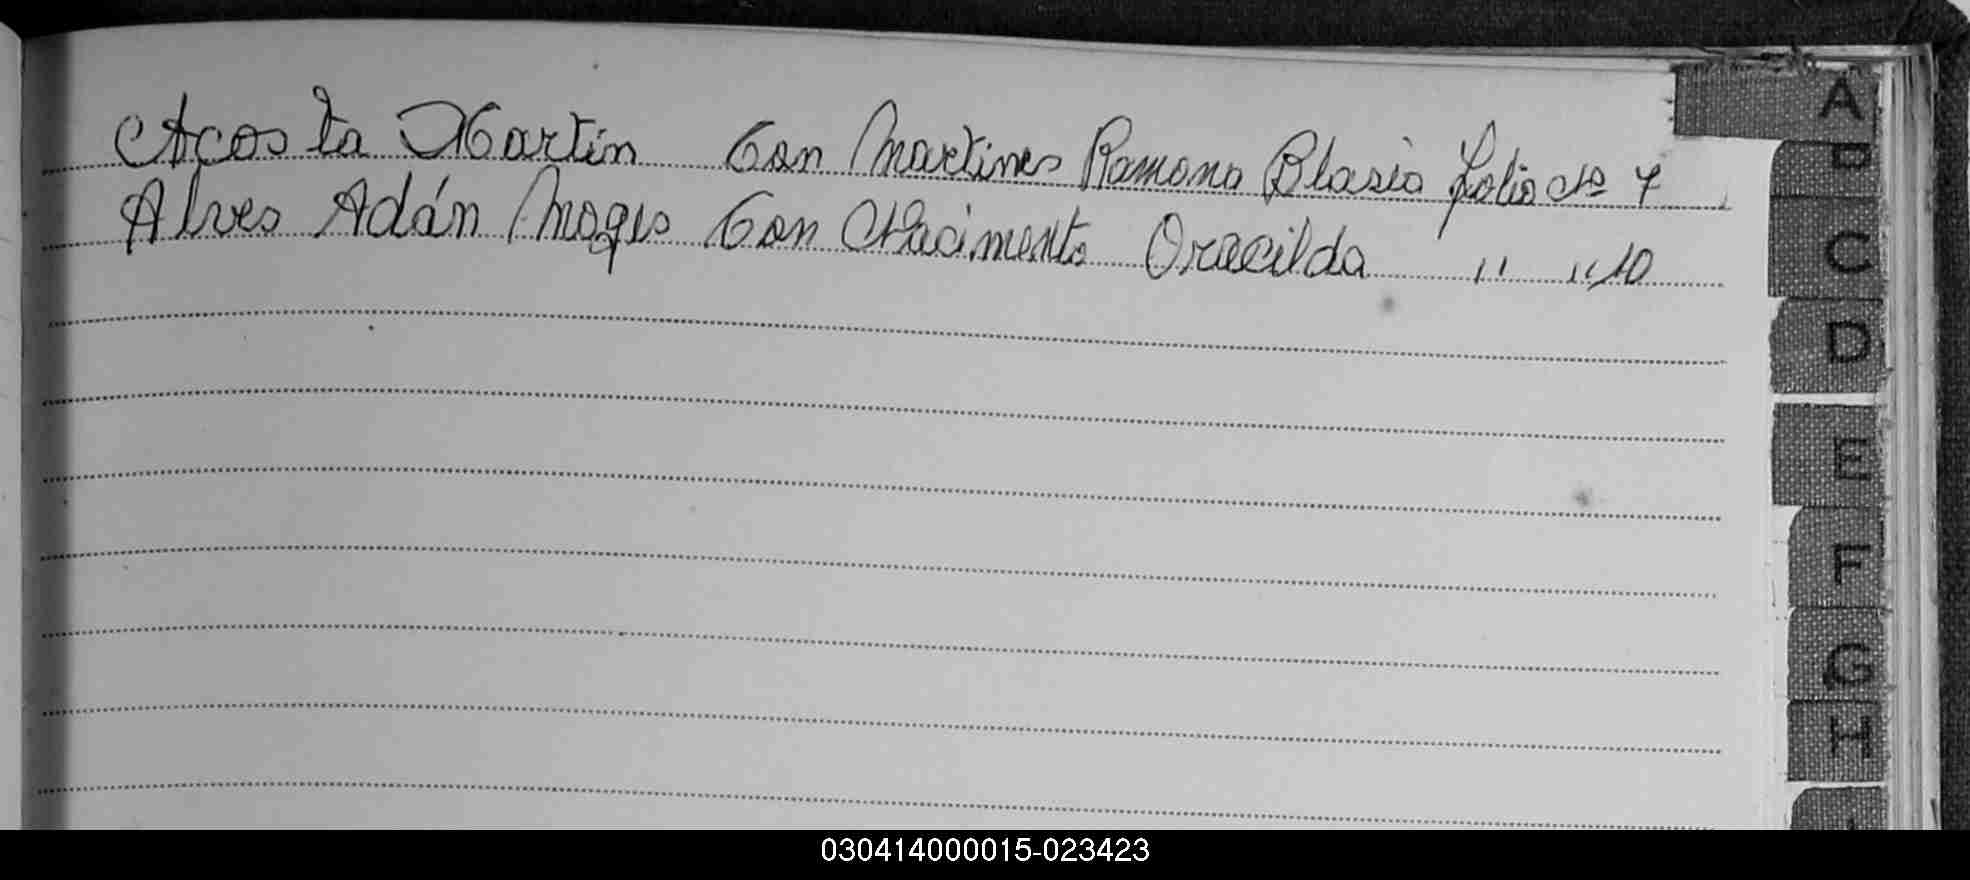 Acosta Martin Con Martines Ramona Blasia folio Nº 7
Alves Adán Con Nacimento Oracilda " " 10
A
B
C
D
E
F
G
H
030414000015-023423